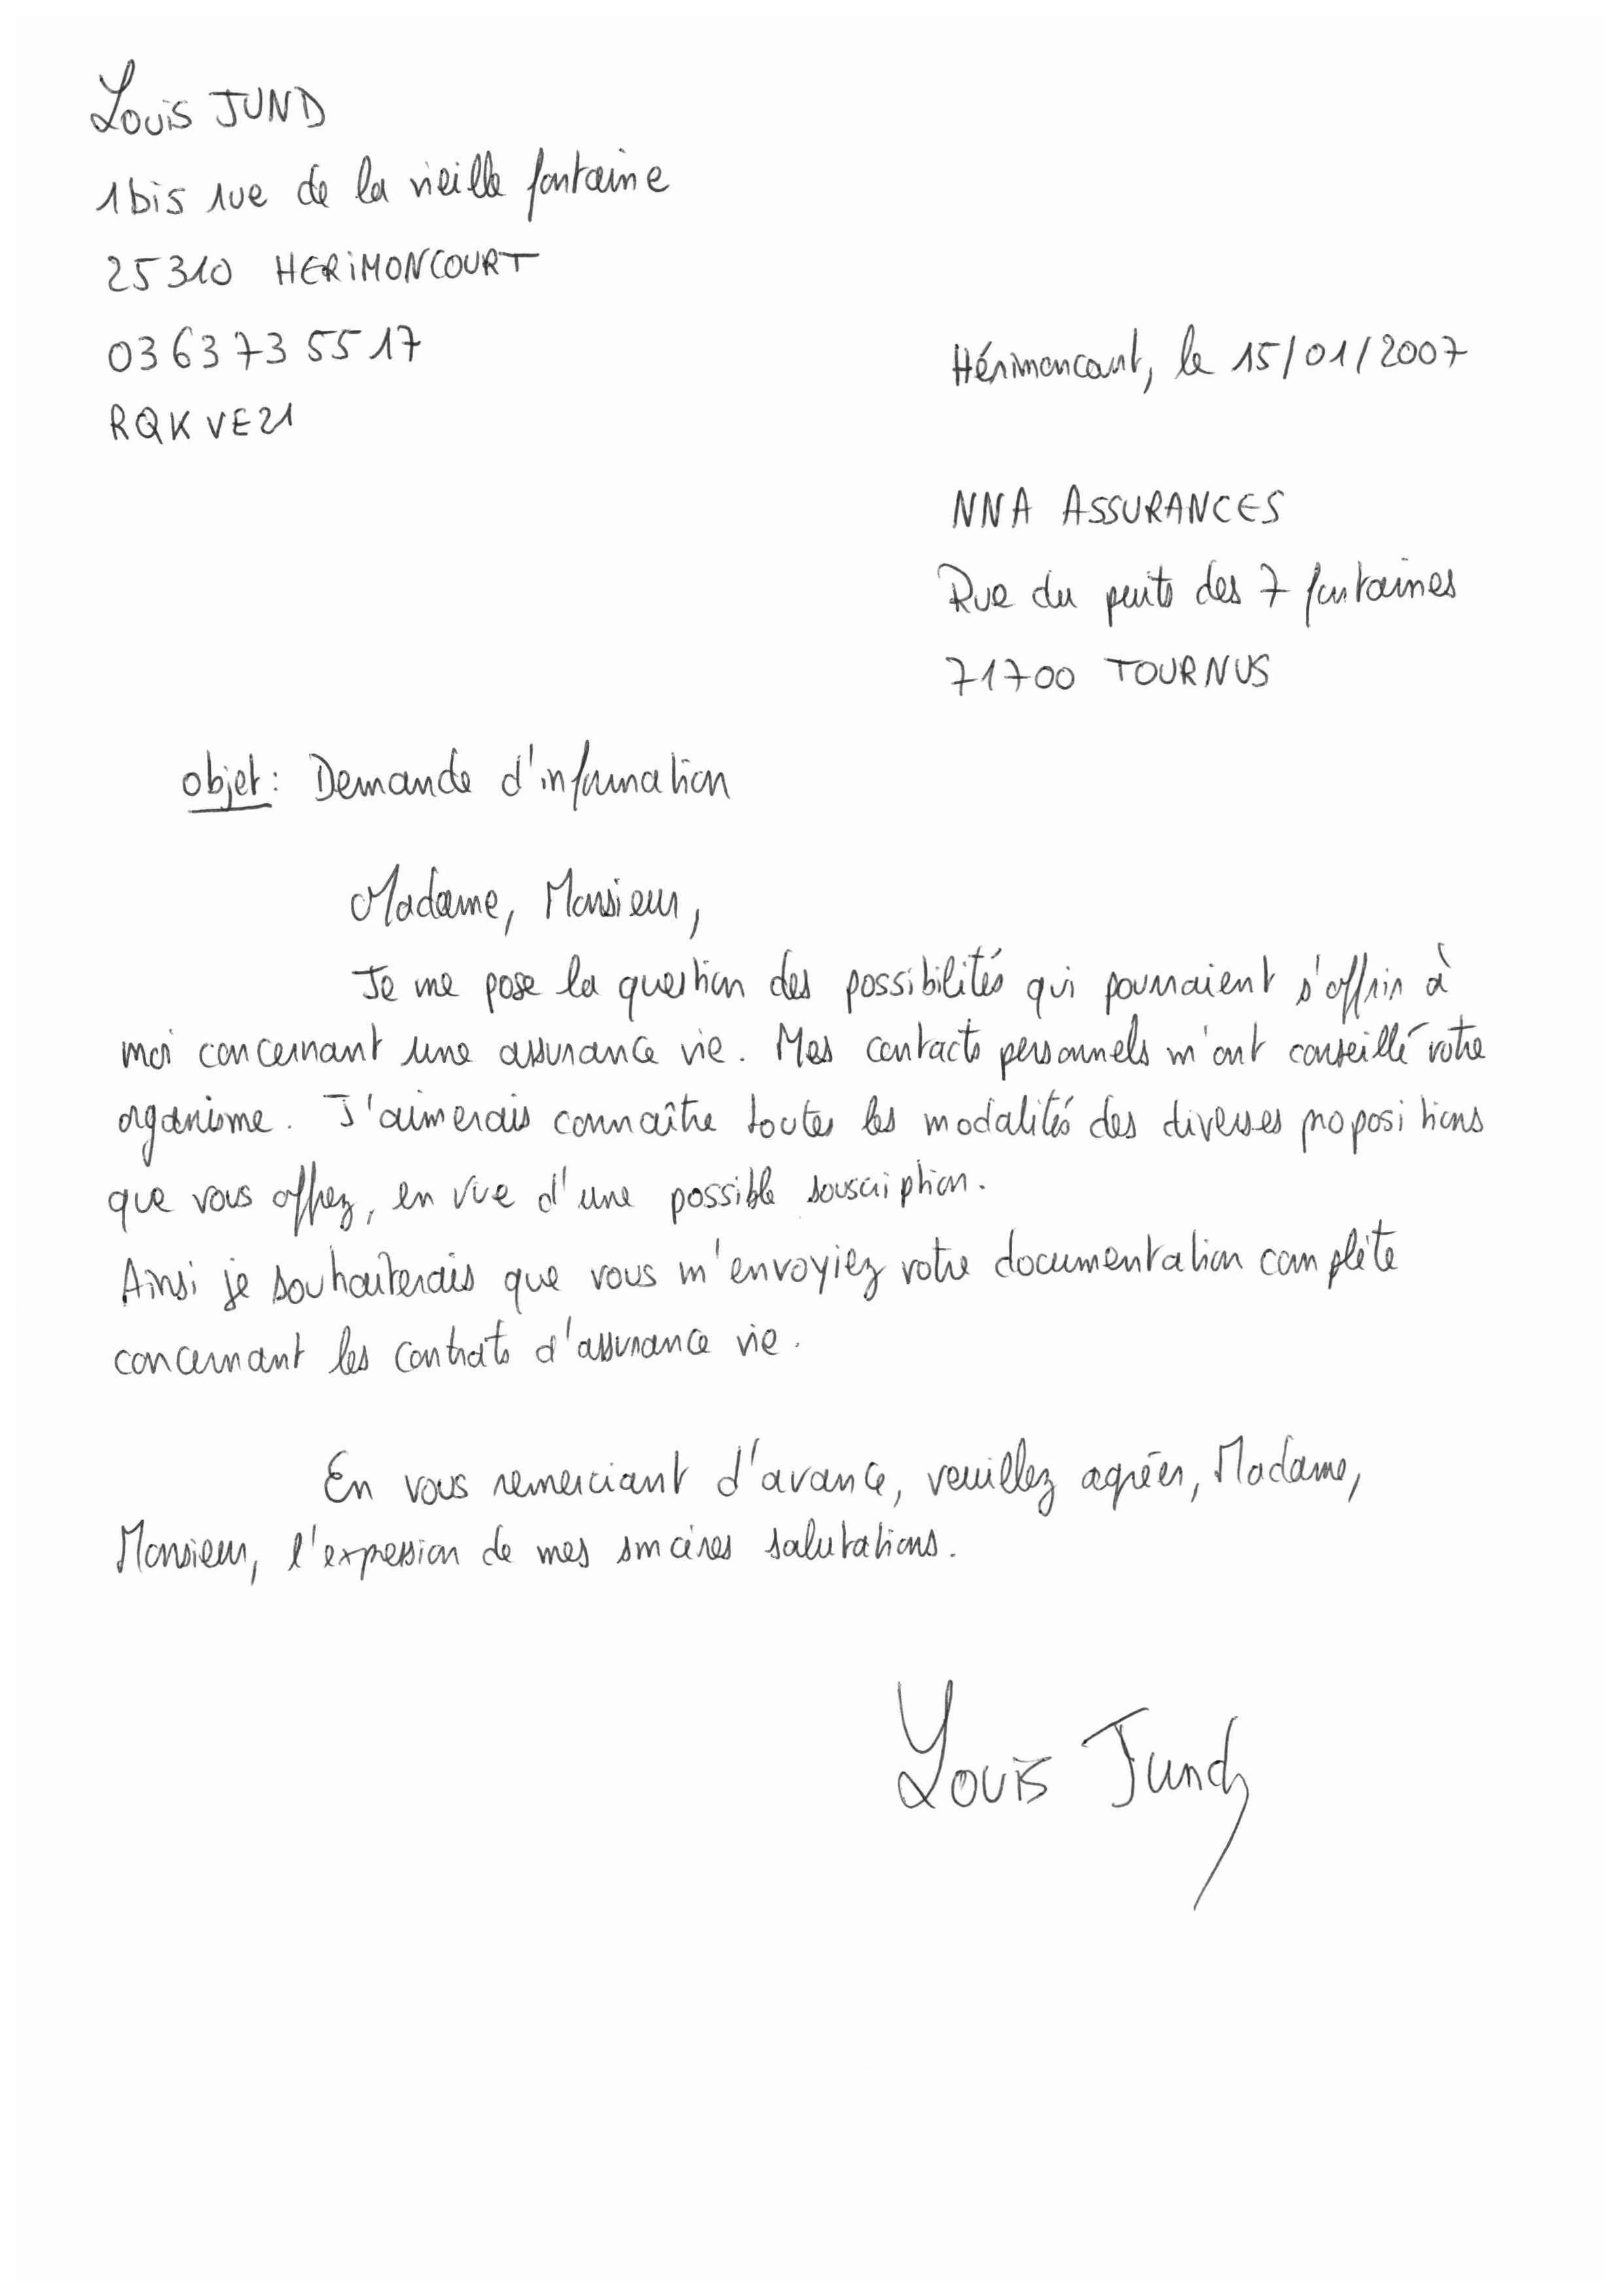 Louis JUND
1bis rue de la vieille fontaine
25310 HERIMONCOURT
03 63 73 55 17
RQKVE21
Hérimoncourt, le 15/01/2007
NNA ASSURANCES
Rue du puits des 7 fontaines
71700 TOURNUS
objet: Demande d'information
Madame, Monsieur,
Je me pose la question des possibilités qui pourraient s'offrir à
moi concernant une assurance vie. Mes contacts personnels m'ont conseillé votre
organisme. J'aimerais connaître toutes les modalités des diverses propositions
que vous offrez, en vue d'une possible souscription.
Ainsi je souhaiterais que vous m'envoyiez votre documentation complète
concernant les contrats d'assurance vie.
En vous remerciant d'avance, veuillez agréer, Madame,
Monsieur, l'expression de mes sincères salutations.
Louis Jund